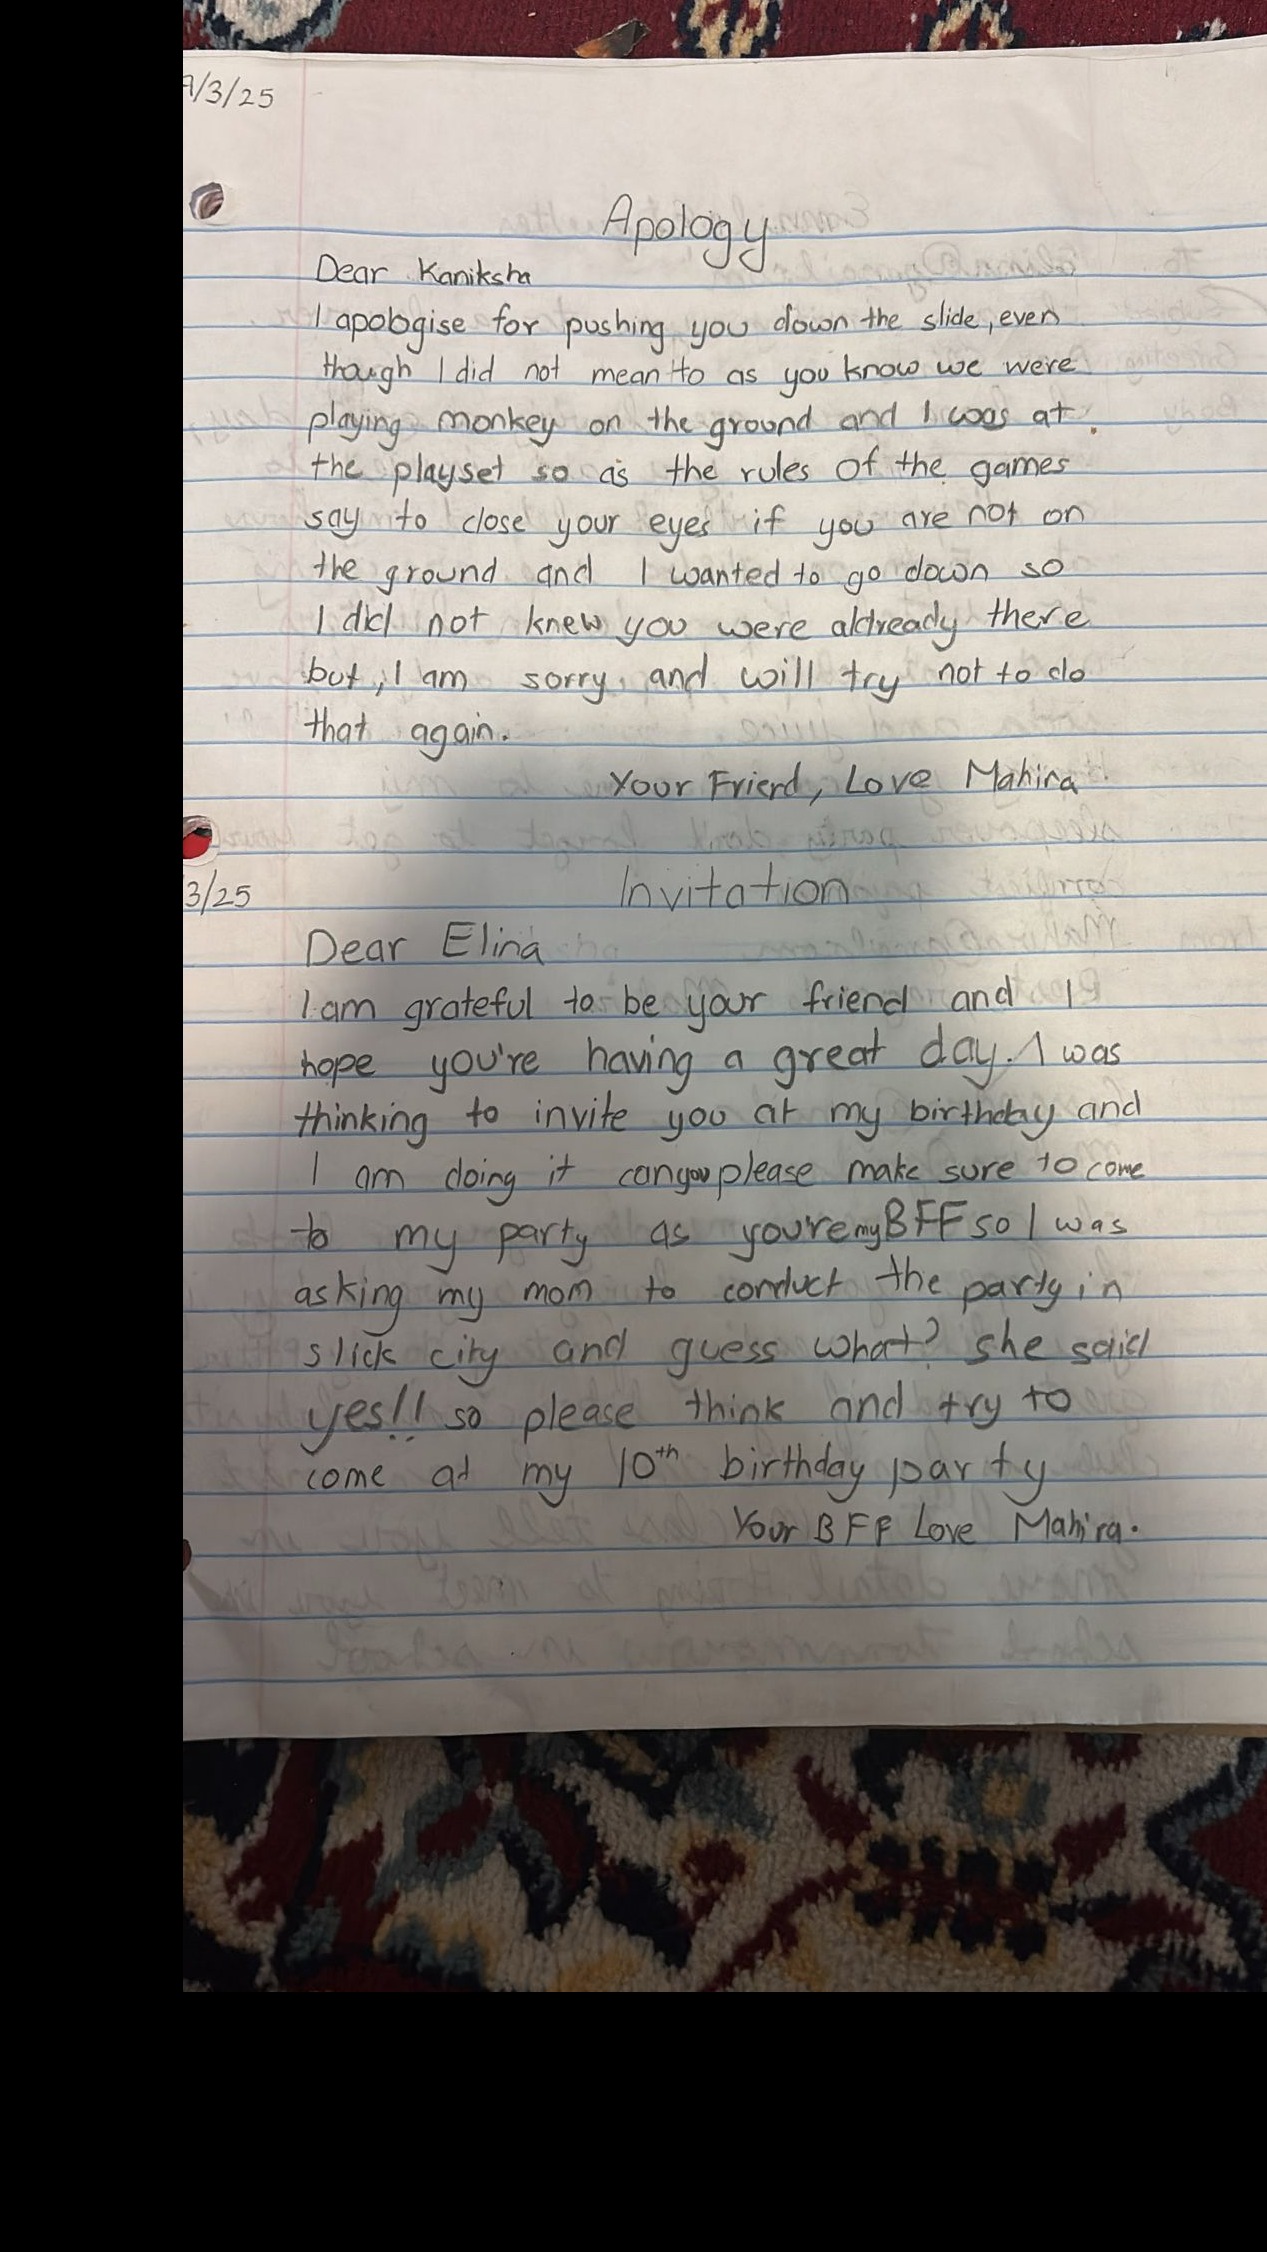 9/3/25
Apology
Dear Kaniksha
I apologise for pushing you down the slide, even
though I did not mean to as you know we were
playing monkey on the ground and I was at
the playset so as the rules of the games
say to close your eyes if you are not on
the ground and I wanted to go down so
I did not knew you were aldready there
but, I am sorry and will try not to do
that again.
Your Friend, Love Mahira
3/25
Invitation
Dear Elina
I am grateful to be your friend and I
hope you're having a great day. I was
thinking to invite you at my birthday and
I am doing it can you please make sure to come
to my party as you're my BFF so I was
asking my mom to conduct the party in
slick city and guess what? she said
yes!! so please think and try to
come at my 10th birthday party
Your BFF Love Mahira.